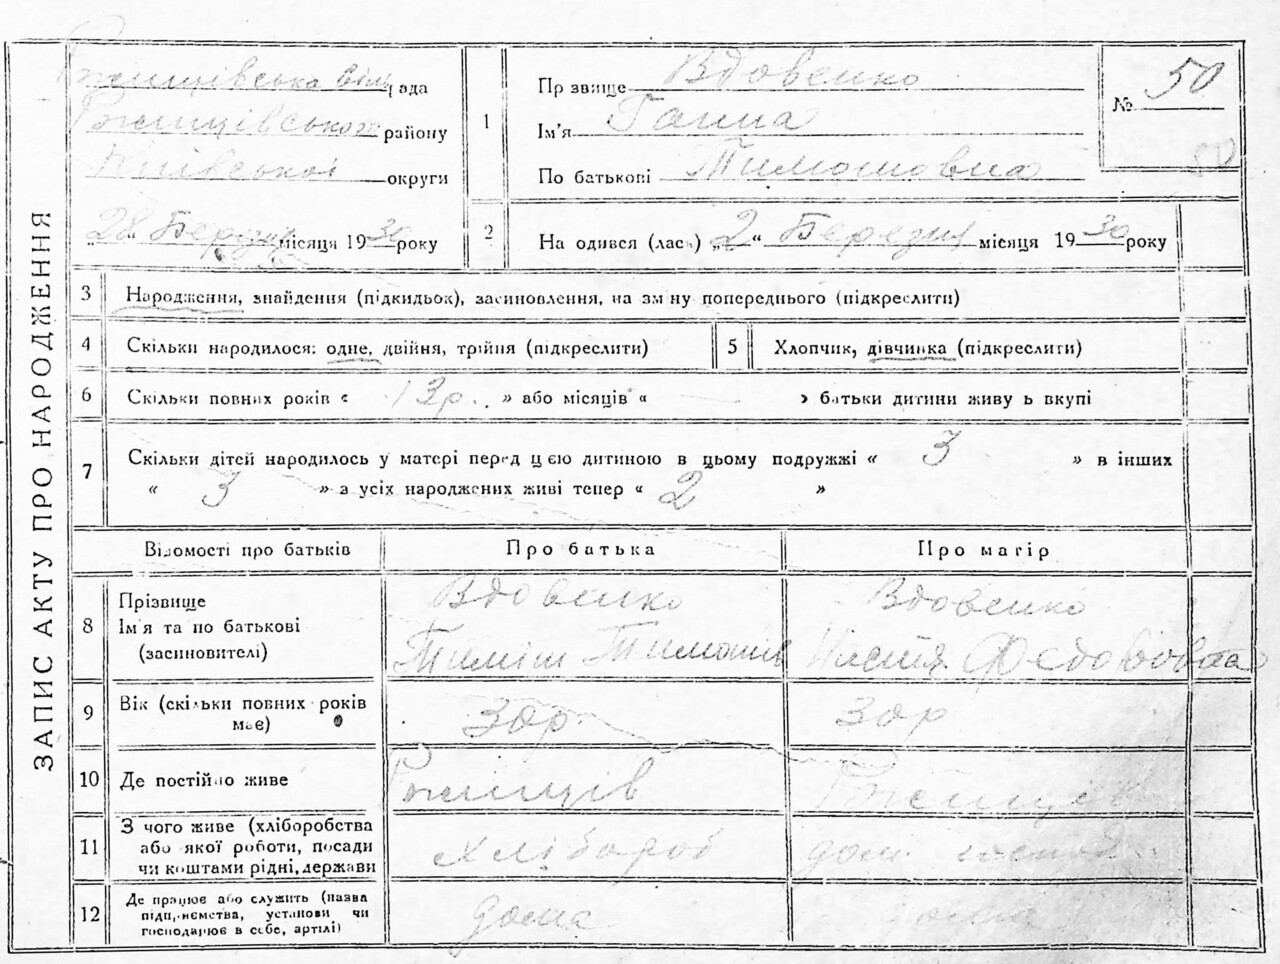 ЗАПИС АКТУ ПРО НАРОДЖЕННЯ
Ржищівська Сіль рада
Ржищівського району
Київської округи
„28" Березня місяця 1930 року
1
Прізвище Вдовенко
Ім'я Ганна
По батькові Тимошовна
№ 50
50
2
На одився (лась) „2" Березня місяця 1930 року
3 Народження, знайдення (підкидьок), засиновлення, на зміну попереднього (підкреслити)
4 Скільки народилося: одне, двійня, трійня (підкреслити)
5 Хлопчик, дівчинка (підкреслити)
6 Скільки повних років « 13р. » або місяців « — » батьки дитини живуть вкупі
7 Скільки дітей народилось у матері перед цією дитиною в цьому подружжі « 3 » в інших
« 3 » з усіх народжених живі тепер « 2 »
Відомості про батьків Про батька Про матір
8 Прізвище
Ім'я та по батькові
(засиновителі)
Вдовенко
Тиміш Тимошів
Вдовенко
Федоровна
9 Вік (скільки повних років
має)
30р.
30р
10 Де постійно живе Ржищів Ржищів
11 З чого живе (хліборобства
або якої роботи, посади
чи коштами рідні, держави
хлібороб
дом. господ.
12 Де працює або служить (назва
підприємства, установи чи
господарює в себе, артілі)
дома
дома